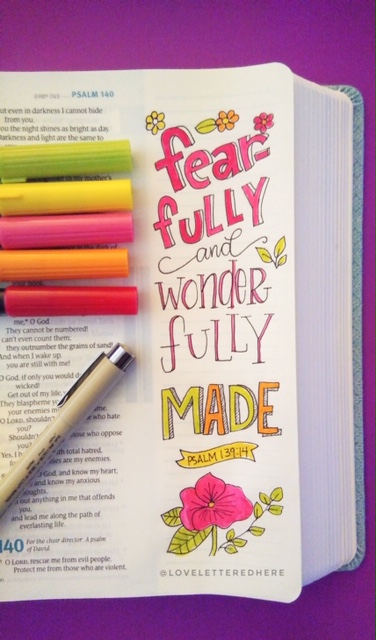 PSALM 140
out even in darkness I cannot hide
from you.
you the night shines as bright as day.
Darkness and light are the same to
me,* O God.
They cannot be numbered!
can't even count them;
they outnumber the grains of sand!
And when I wake up,
you are still with me!
O God, if only you would d
wicked!
Get out of my life,
They blaspheme y
your enemies m
names.
O LORD, shouldn't
who hate
you?
Shouldn't
those who oppose
you?
Yes, I
total hatred,
are my enemies.
God, and know my heart;
and know my anxious
thoughts.
out anything in me that offends
you,
and lead me along the path of
everlasting life.
140 For the choir director: A psalm
of David.
O LORD, rescue me from evil people.
Protect me from those who are violent,
fear-
fully
and
wonder
fully
MADE
PSALM 139:14
@LOVELETTEREDHERE